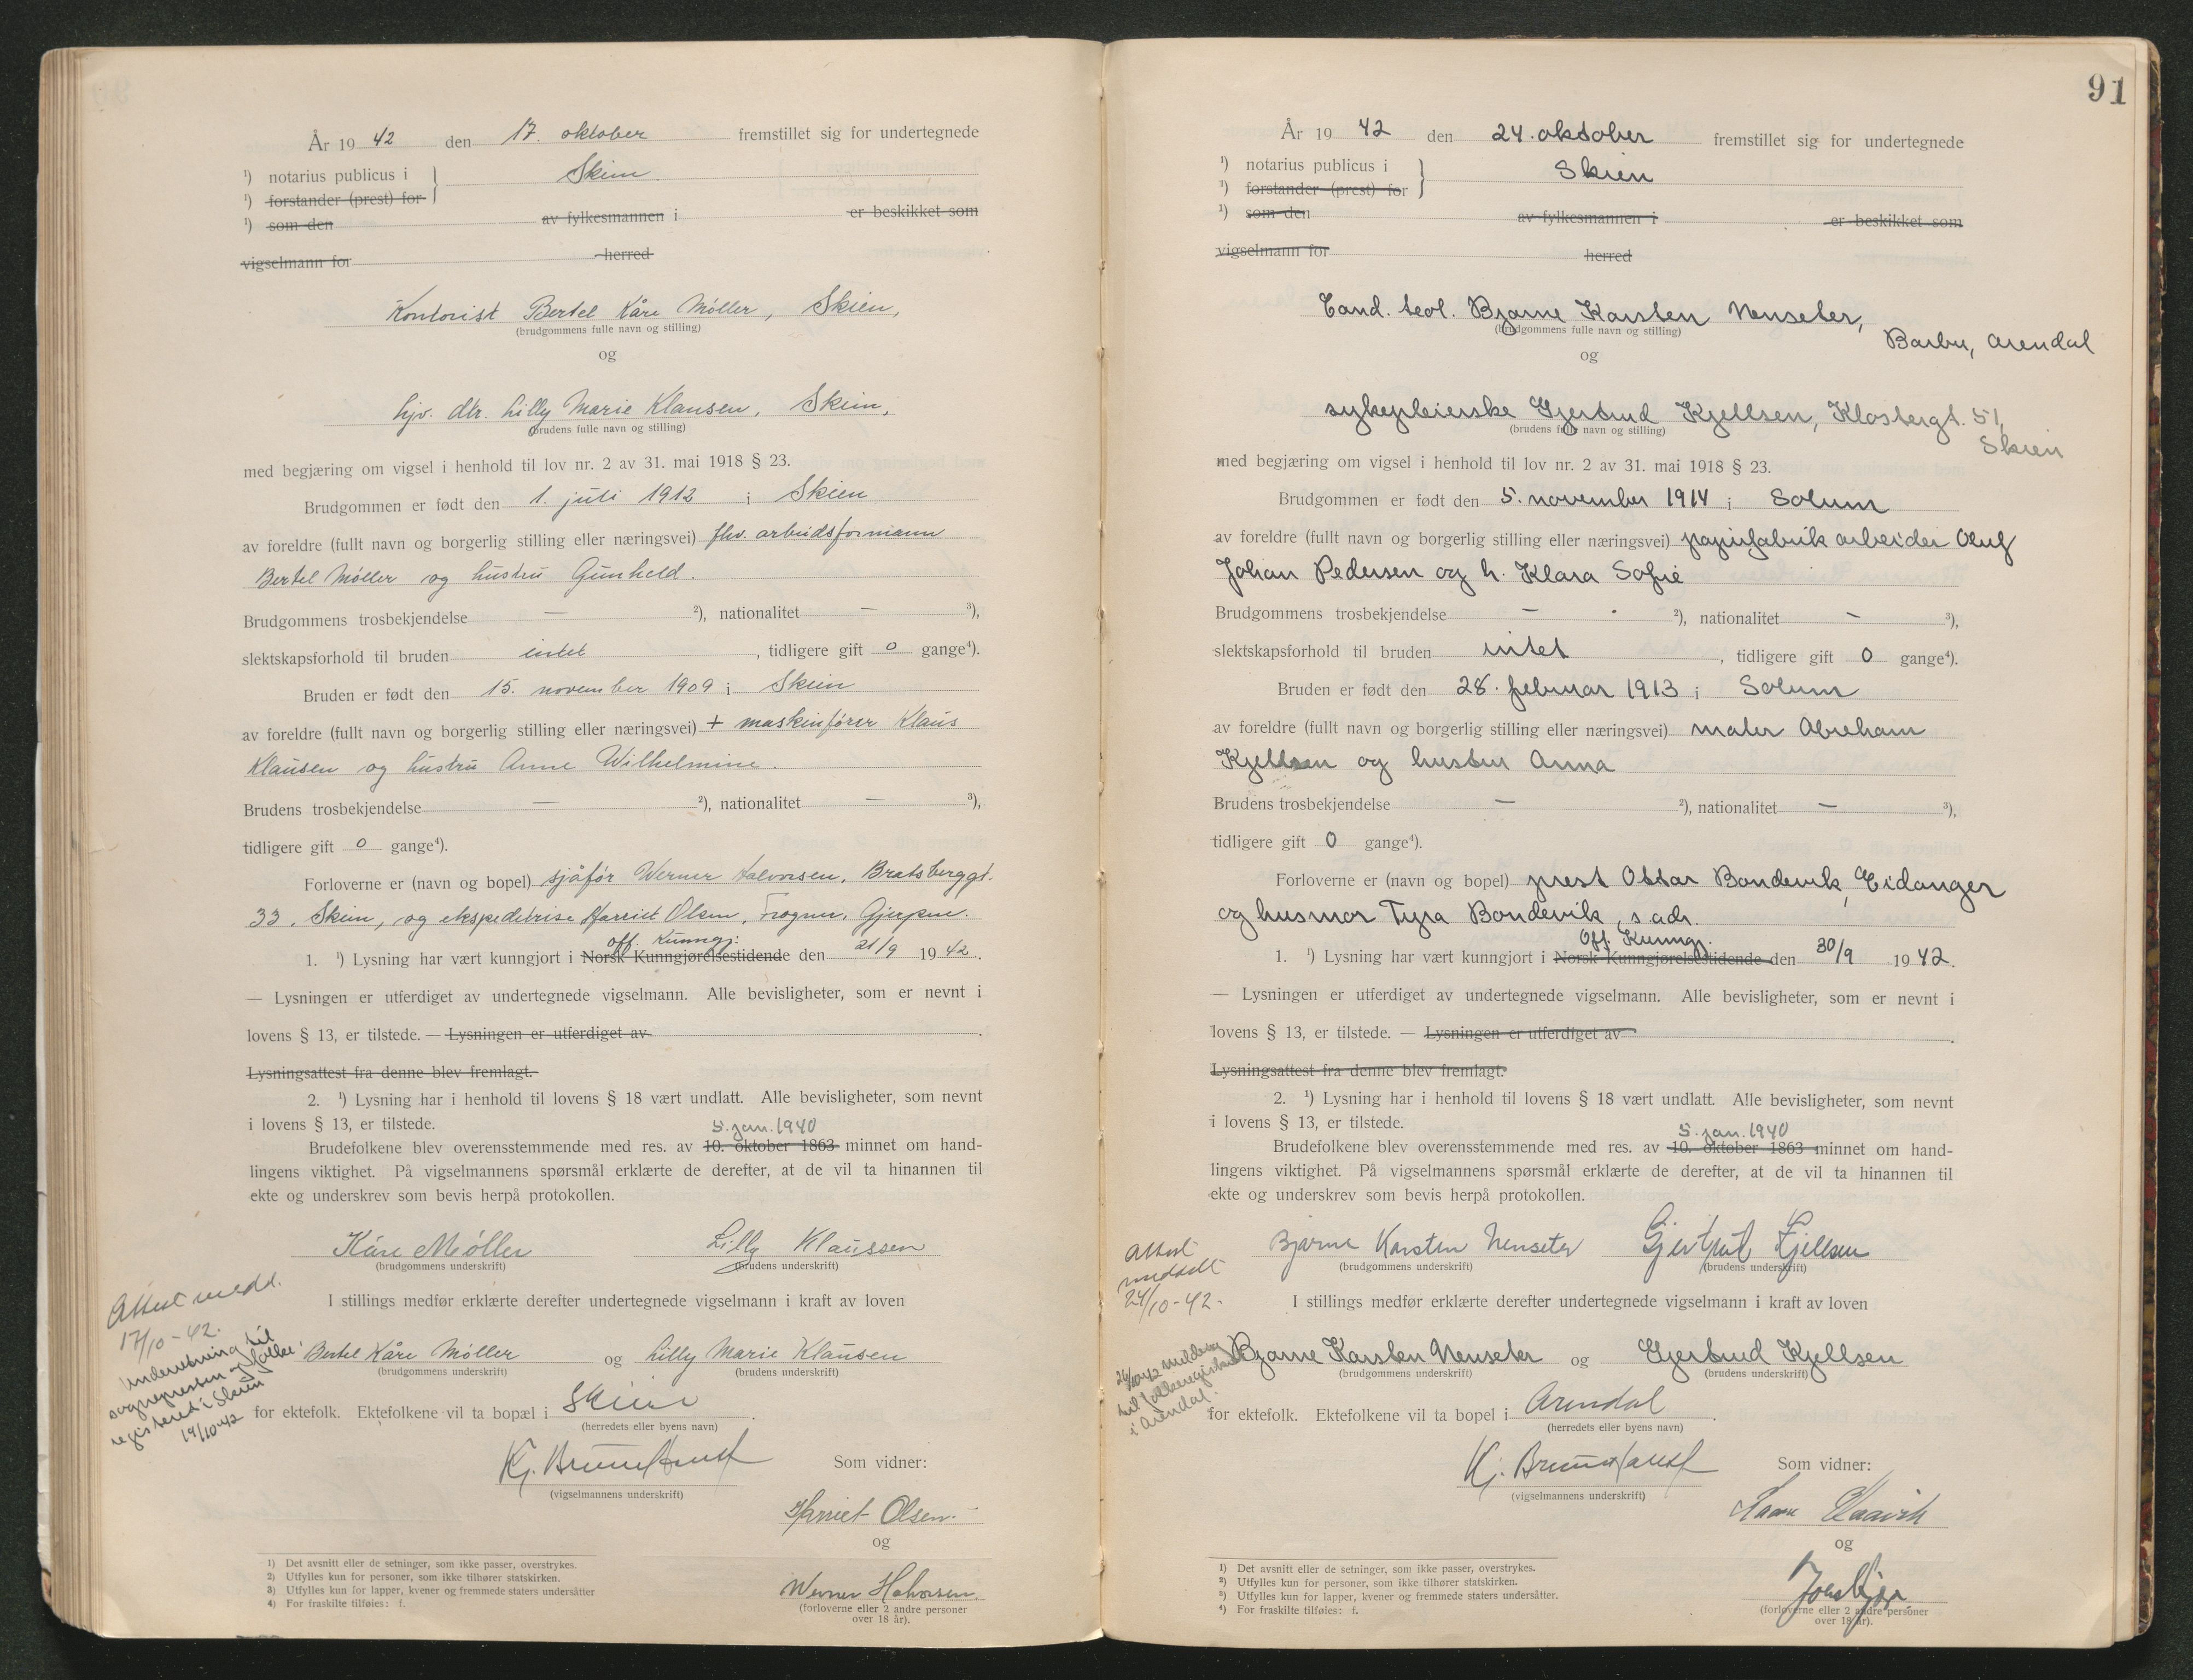 År 19 42 den 17. oktober fremstillet sig for undertegnede
¹) notarius publicus i Skien.
¹) forstander (prest) for
¹) som den av fylkesmannen i er beskikket som
vigselmann for herred
Kontorist Bertel Kåre Møller, Skien,
(brudgommens fulle navn og stilling)
og
hjv. dtr. Lilly Marie Klausen, Skien,
(brudens fulle navn og stilling)
med begjæring om vigsel i henhold til lov nr. 2 av 31. mai 1918 § 23.
Brudgommen er født den 1. juli 1912 i Skien
av foreldre (fullt navn og borgerlig stilling eller næringsvei) fhv. arbeidsformann
Bertel Møller og hustru Gunhild.
Brudgommens trosbekjendelse — ²), nationalitet — ³),
slektskapsforhold til bruden intet, tidligere gift 0 gange⁴).
Bruden er født den 15. november 1909 i Skien
av foreldre (fullt navn og borgerlig stilling eller næringsvei) + maskinfører Klaus
Klausen og hustru Anne Wilhelmine.
Brudens trosbekjendelse — ²), nationalitet — ³),
tidligere gift 0 gange⁴).
Forloverne er (navn og bopel) sjåfør Werner Halvorsen, Bratsberggt.
33, Skien, og ekspeditrise Harriet Olsen, Frogner, Gjerpen.
off. Kunngj:
1. ¹) Lysning har vært kunngjort i Norsk Kunngjørelsestidende den 21/9 1942.
— Lysningen er utferdiget av undertegnede vigselmann. Alle bevisligheter, som er nevnt i
lovens § 13, er tilstede. — Lysningen er utferdiget av
Lysningsattest fra denne blev fremlagt.
2. ¹) Lysning har i henhold til lovens § 18 vært undlatt. Alle bevisligheter, som nevnt
i lovens § 13, er tilstede.
5. jan. 1940
Brudefolkene blev overensstemmende med res. av 10. oktober 1863 minnet om hand-
lingens viktighet. På vigselmannens spørsmål erklærte de derefter, at de vil ta hinannen til
ekte og underskrev som bevis herpå protokollen.
Kåre Møller Lilly Klaussen
(brudgommens underskrift) (brudens underskrift)
Attest medd.
17/10-42.
I stillings medfør erklærte derefter undertegnede vigselmann i kraft av loven
Underretning til
sognepresten og folke-
registeret i Skien
19/10-42
Bertel Kåre Møller og Lilly Marie Klausen
(brudgommens underskrift) (brudens underskrift)
for ektefolk. Ektefolkene vil ta bopæl i Skien.
(herredets eller byens navn)
Kj.
(vigselmannens underskrift)
Som vidner:
Harriet Olsen.
og
Werner Halvorsen.
(forloverne eller 2 andre personer
over 18 år).
1) Det avsnitt eller de setninger, som ikke passer, overstrykes.
2) Utfylles kun for personer, som ikke tilhører statskirken.
3) Utfylles kun for lapper, kvener og fremmede staters undersåtter
4) For fraskilte tilføies: f.
91
År 19 42 den 24. oktober fremstillet sig for undertegnede
¹) notarius publicus i Skien
¹) forstander (prest) for
¹) som den av fylkesmannen i er beskikket som
vigselmann for herred
Cand. teol. Bjarne Karsten Nenseter,
Barbu, Arendal
(brudgommens fulle navn og stilling)
og
sykepleierske Gjertrud Kjellsen, Klostergt. 51,
Skien
(brudens fulle navn og stilling)
med begjæring om vigsel i henhold til lov nr. 2 av 31. mai 1918 § 23.
Brudgommen er født den 5. november 1914 i Solum
av foreldre (fullt navn og borgerlig stilling eller næringsvei) papirfabrikarbeider Oluf
Johan Pedersen og h. Klara Sofie
Brudgommens trosbekjendelse — ²), nationalitet — ³),
slektskapsforhold til bruden intet, tidligere gift 0 gange⁴).
Bruden er født den 28. februar 1913 i Solum
av foreldre (fullt navn og borgerlig stilling eller næringsvei) maler Abraham
Kjellsen og hustru Anna
Brudens trosbekjendelse — ²), nationalitet — ³),
tidligere gift 0 gange⁴).
Forloverne er (navn og bopel) prest Ottar Bondevik, Eidanger
og husmor Tyra Bondevik, s.adr.
Off. Kunngj.
1. ¹) Lysning har vært kunngjort i Norsk Kunngjørelsestidende den 30/9 1942.
— Lysningen er utferdiget av undertegnede vigselmann. Alle bevisligheter, som er nevnt i
lovens § 13, er tilstede. — Lysningen er utferdiget av
Lysningsattest fra denne blev fremlagt.
2. ¹) Lysning har i henhold til lovens § 18 vært undlatt. Alle bevisligheter, som nevnt
i lovens § 13, er tilstede.
5. jan. 1940
Brudefolkene blev overensstemmende med res. av 10. oktober 1863 minnet om hand-
lingens viktighet. På vigselmannens spørsmål erklærte de derefter, at de vil ta hinannen til
ekte og underskrev som bevis herpå protokollen.
Bjarne Karsten Nenseter Gjertrud Kjellsen
(brudgommens underskrift) (brudens underskrift)
Attest
meddelt
24/10-42.
I stillings medfør erklærte derefter undertegnede vigselmann i kraft av loven
26/10-42 melding
til folkeregisteret
i Arendal.
Bjarne Karsten Nenseter og Gjertrud Kjellsen
(brudgommens underskrift) (brudens underskrift)
for ektefolk. Ektefolkene vil ta bopel i Arendal.
(herredets eller byens navn)
Kj.
(vigselmannens underskrift)
Som vidner:
og
(forloverne eller 2 andre personer
over 18 år).
1) Det avsnitt eller de setninger, som ikke passer, overstrykes.
2) Utfylles kun for personer, som ikke tilhører statskirken.
3) Utfylles kun for lapper, kvener og fremmede staters undersåtter.
4) For fraskilte tilføies: f.